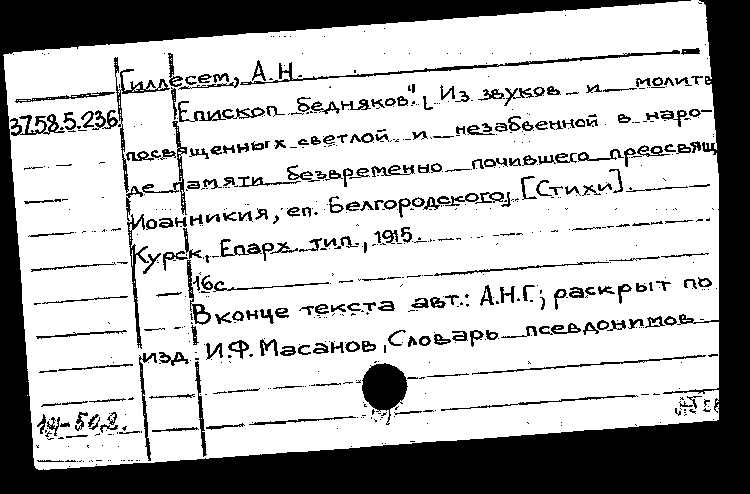 Гиллесем, А.Н.
37.58.5.236 „Епископ бедняков". [Из звуков и молитв
посвященных светлой и незабвенной в наро-
де памяти безвременно почившего преосвящ
Иоанникия, еп. Белгородского]. [Стихи].
Курск, Епарх. тип., 1915.
16с.
В конце текста авт.: А.Н.Г.; раскрыт по
изд. И.Ф. Масанов, Словарь псевдонимов